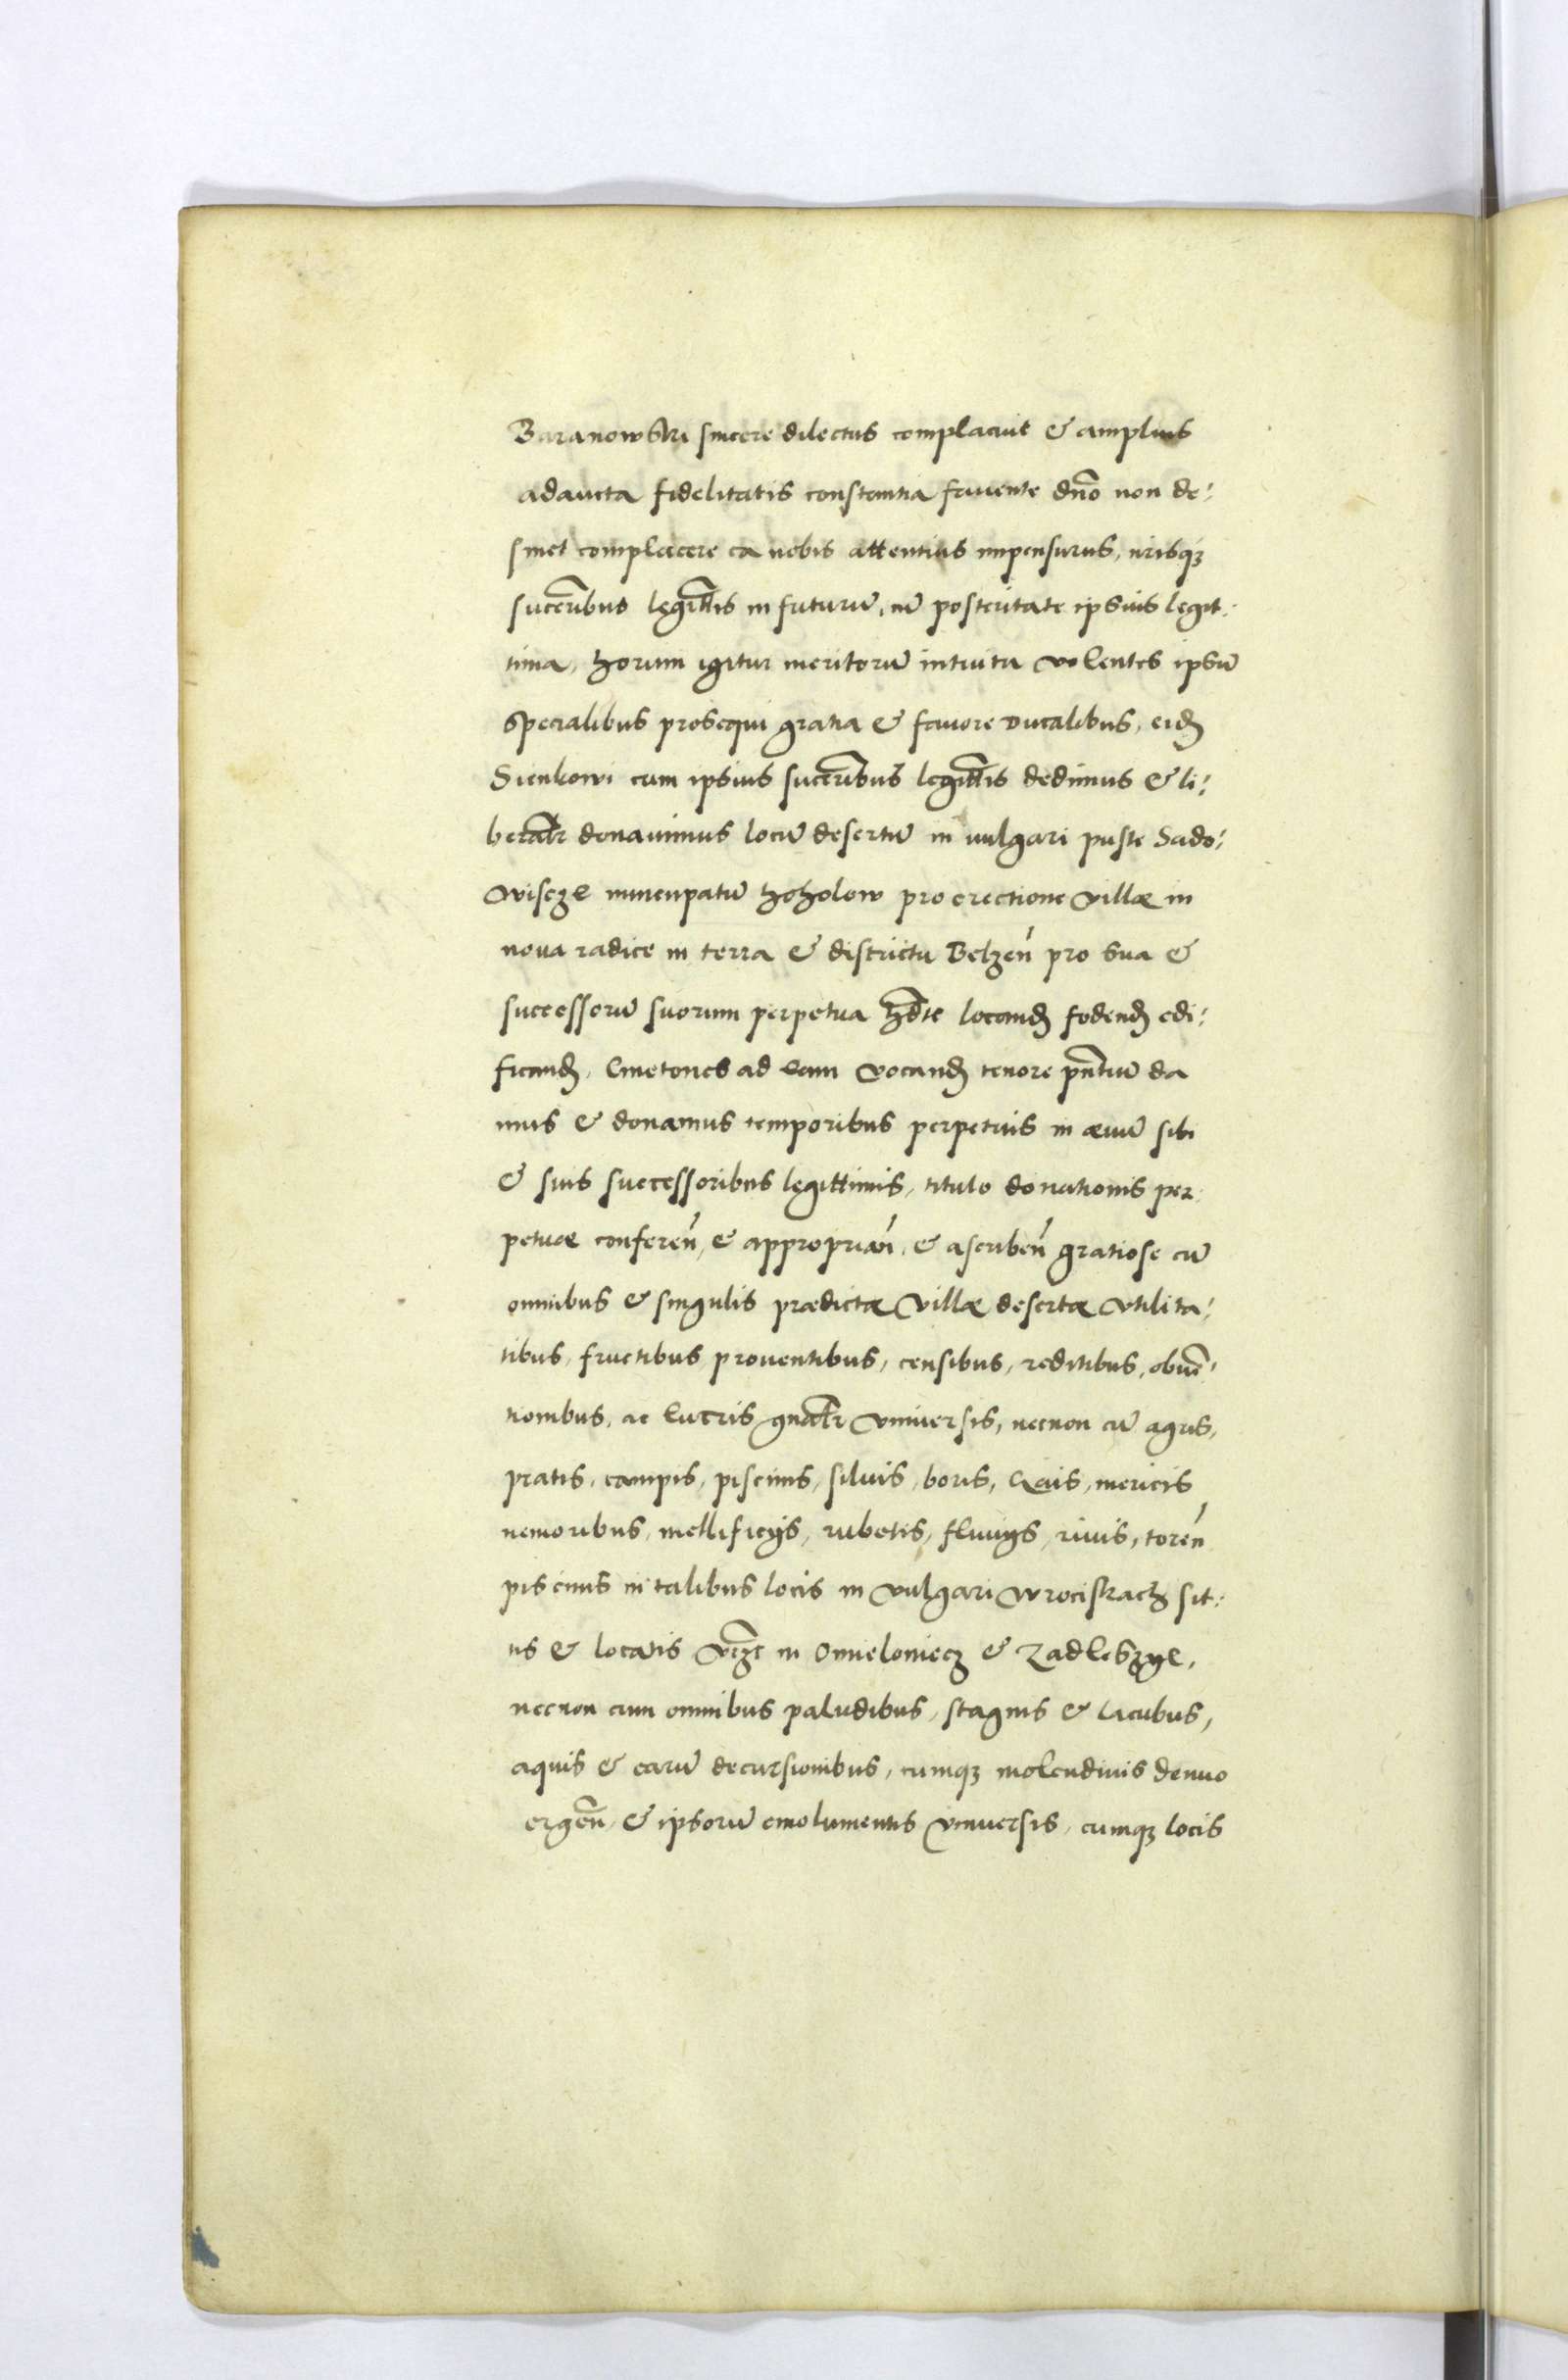 Baranowski sincere dilectus complacuit & amplius
adaucta fidelitatis constantia favente dño non de:
sinet complacere ca nobis attentius impensurus, nrisq₃
succeribus legittis in futurũ, cũ posteritate ipsius legit:
tima, horum igitur meritorũ intuitu volentes ipsũ
specialibus prosequi gratia & favore Ducalibus, eid
Sienkowi cum ipsius succeribus legittis dedimus & li:
beratr donavimus locũ desertũ in vulgari puste Sado:
wiscze nuncupatũ hoholow pro erectione villæ in
nova radice in terra & districtu Belzen̄ pro sua &
successorũ suorum perpetua hdte locand fodend edi:
ficand, Cmetones ad eam vocand tenore pñtiũ da
mus & donamus temporibus perpetuis in ævũ sibi
& suis successoribus legittimis, titulo donationis per
petuæ conferen̄, & approprian̄, & ascriben̄ gratiose cũ
omnibus & singulis prædictæ villæ desertæ vtilita:
tibus, fructibus proventibus, censibus, reditibus, obvẽ:
tionibus, ac lucris gnãlr vniversis, necnon cũ agris,
pratis, campis, piscinis, silvis, boris, Gais, mericis
nemoribus, mellificijs, rubetis, fluvijs, rivis, toren̄
piscinis in talibus locis in vulgari wrocistzach sit:
is & locatis vcz in Omeloniecz & Zadleszye,
necnon cum omnibus paludibus, stagnis & lacubus,
aquis & earũ decursionibus, cumq₃ molendinis denuo
ergen̄, & ipsorũ emolumentis vniversis, cumq₃ locis